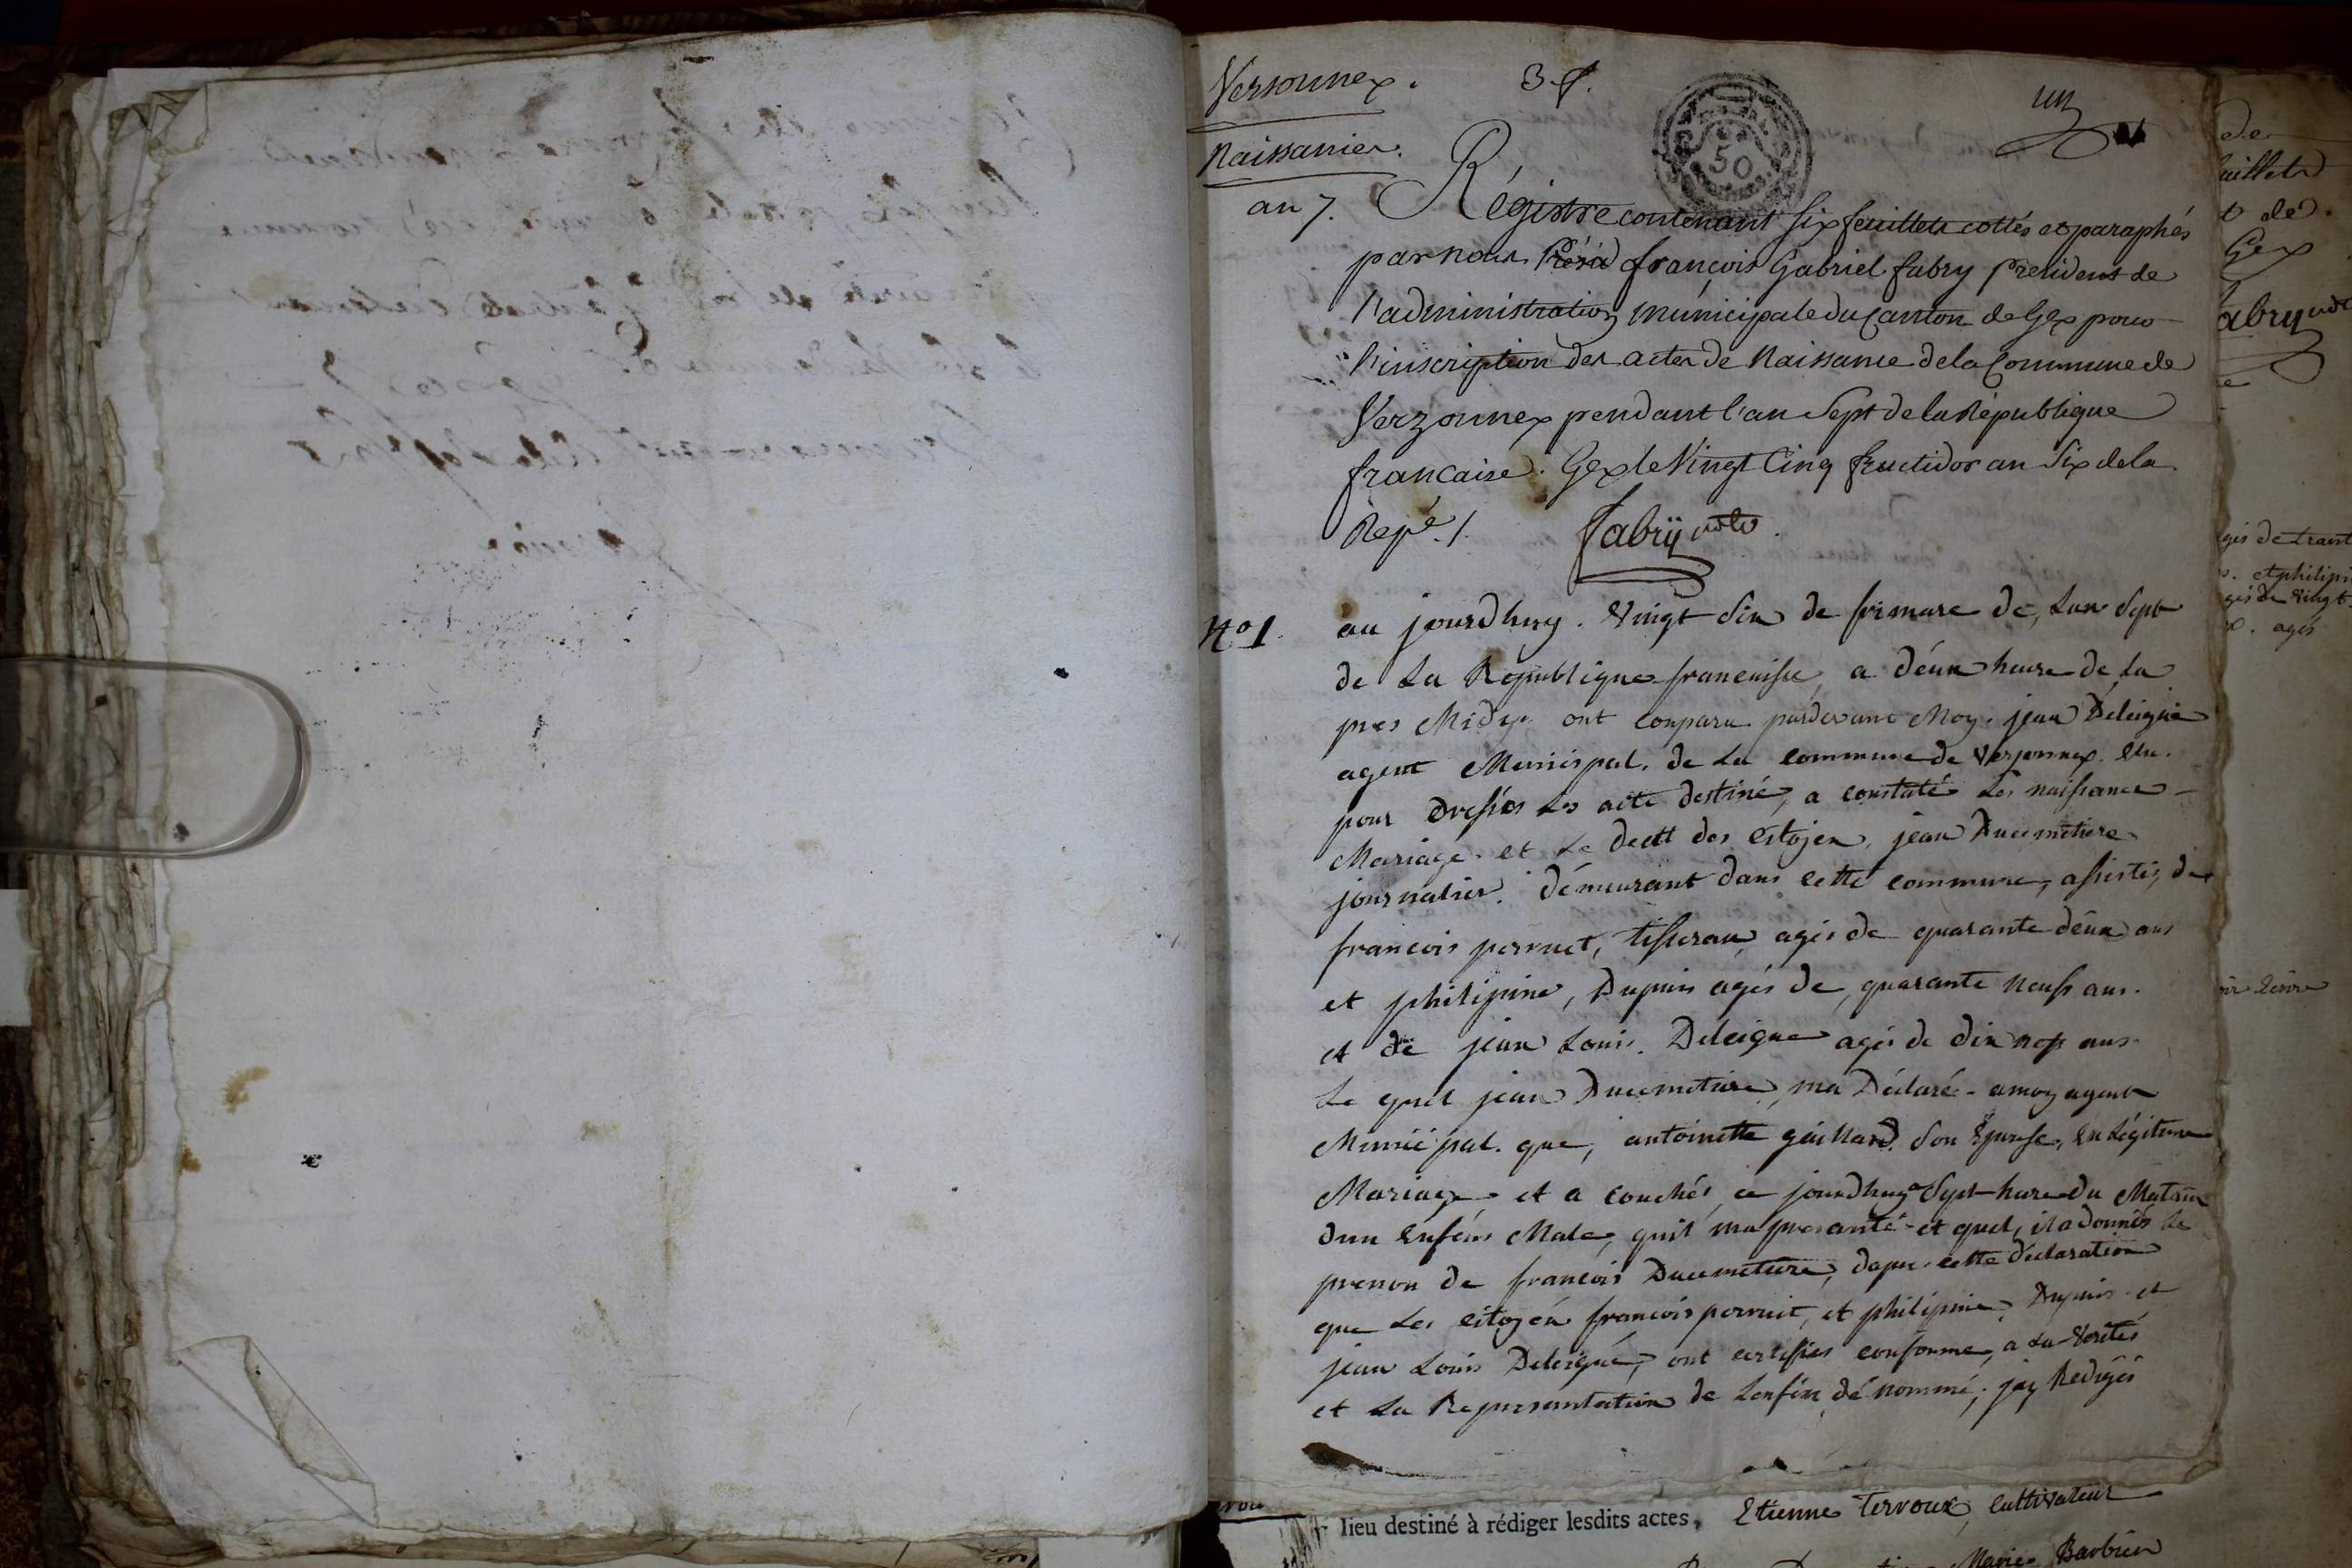 Versonnex.
3 f.
un
Naissances.
50
an 7.
Régistre contenant six feuillets cottés et paraphés
par nous françois Gabriel fabry president de
l'administration municipale du Canton de Gex pour
l'inscription des actes de Naissance de la Commune de
Verzonnex pendant l'an Sept de la République
francaise. Gex le Vingt Cinq fructidor an Six de la
Repe. /. fabrÿ
No 1
au jourdhuy. vingt Six de frimare de, Lan Sept
de La Republique francaisse a déux heure de la
pres Midy. ont conparu pardevant Moy. jean Deleigue
agent Municipal. de La commune de Verjonnex. Elu.
pour dresser Les acte destiné, a constaté Les naissance
Mariage. et Le decet des citojen. jean Ducimetiere
journalier. démeurant dans cette commune, assistés, de
francois perruet, tisseran, agés de quarante déux ans
et philipine, Dupuis agés de, quarante neufs ans.
et de jean Louis. Deleigue agés de dix nof ans
Le quel jean Ducimetiere, ma Déclaré - a moy agent
Municipal. que, antoinette gaillard. Son Epouse, En Légitime
Mariage. et a couchés, ce jourdhuy Sept hure du Matin
dun Enféns Male, quil ma presanté - et quel, il a donnés Le
prenon de francois Ducimetiere, dapre cette declaration
que Les citoyén francois perruit, et philipine, Dupuis et
jean Louis Deleigue, ont certifies conforme, a La Verités
et La Representation de Lenfén dénommé, jay Redigés
de
uillets
t de
Gex
abry
gés de trant
et philipi
gés de vingt
agés
lieu destiné à rédiger lesdits actes, Etienne Tervoux, cultivateur
Marie Barbier